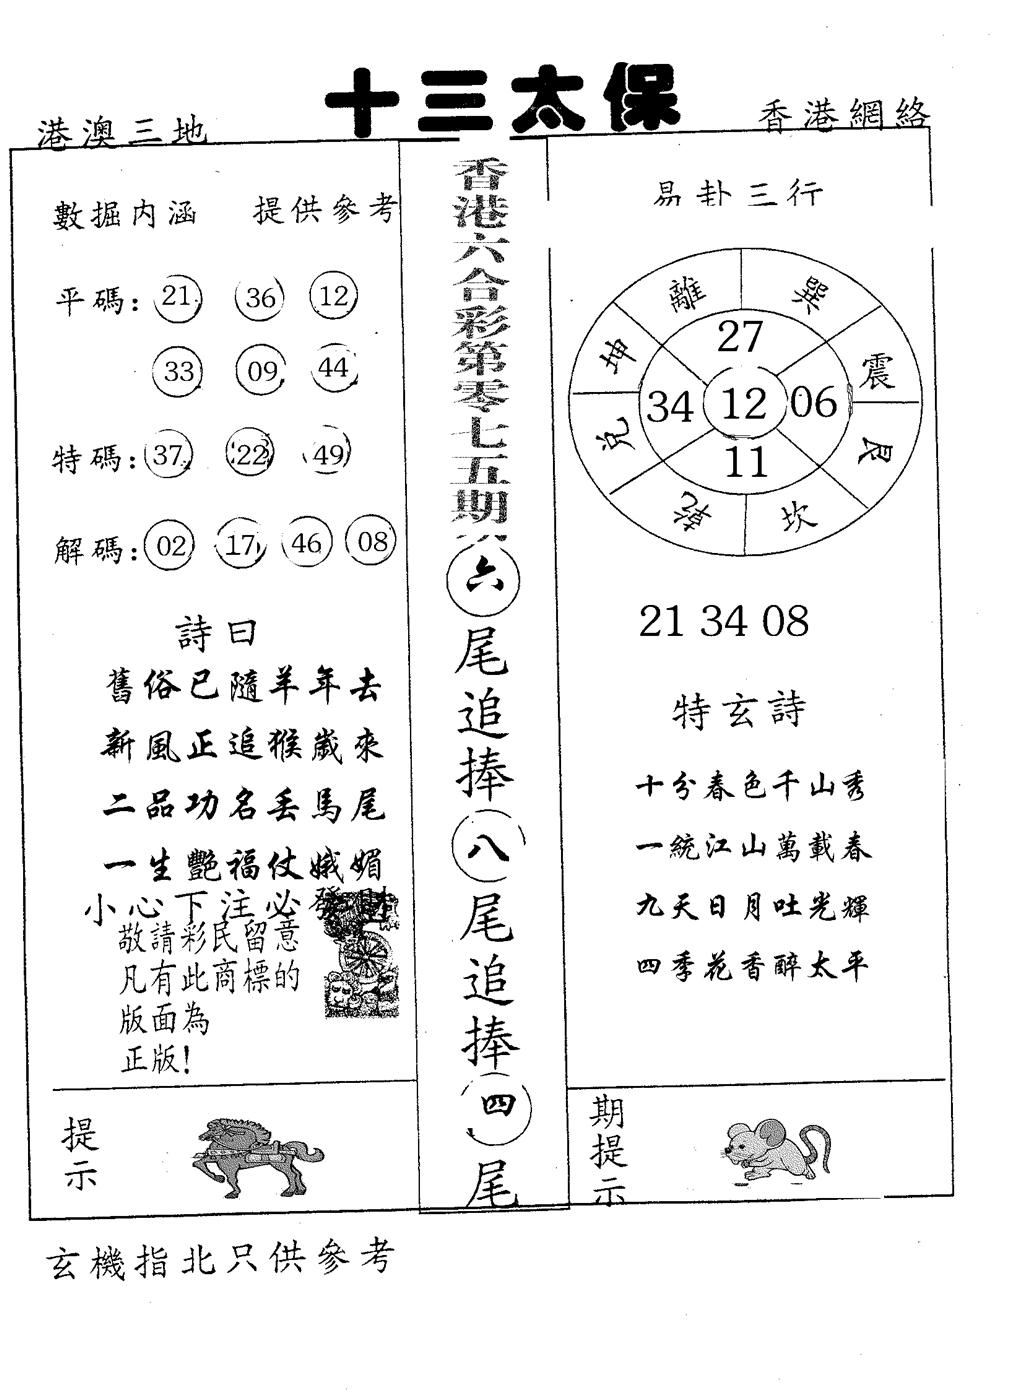 十三太保
港澳三地
香港網絡
數掘内涵 提供參考
平碼: 21 36 12
33 09 44
特碼: 37 22 49
解碼: 02 17 46 08
詩曰
舊俗已隨羊年去
新風正追猴歲來
二品功名丢馬尾
一生艷福仗娥媚
小心下注必發財
敬請彩民留意
凡有此商標的
版面為
正版!
提示
香港六合彩第零七五期
六尾追捧八尾追捧四尾
易卦三行
離 巽
坤 震
兌 艮
乾 坎
27
34 12 06
11
21 34 08
特玄詩
十分春色千山秀
一統江山萬載春
九天日月吐光輝
四季花香醉太平
期提示
玄機指北只供參考